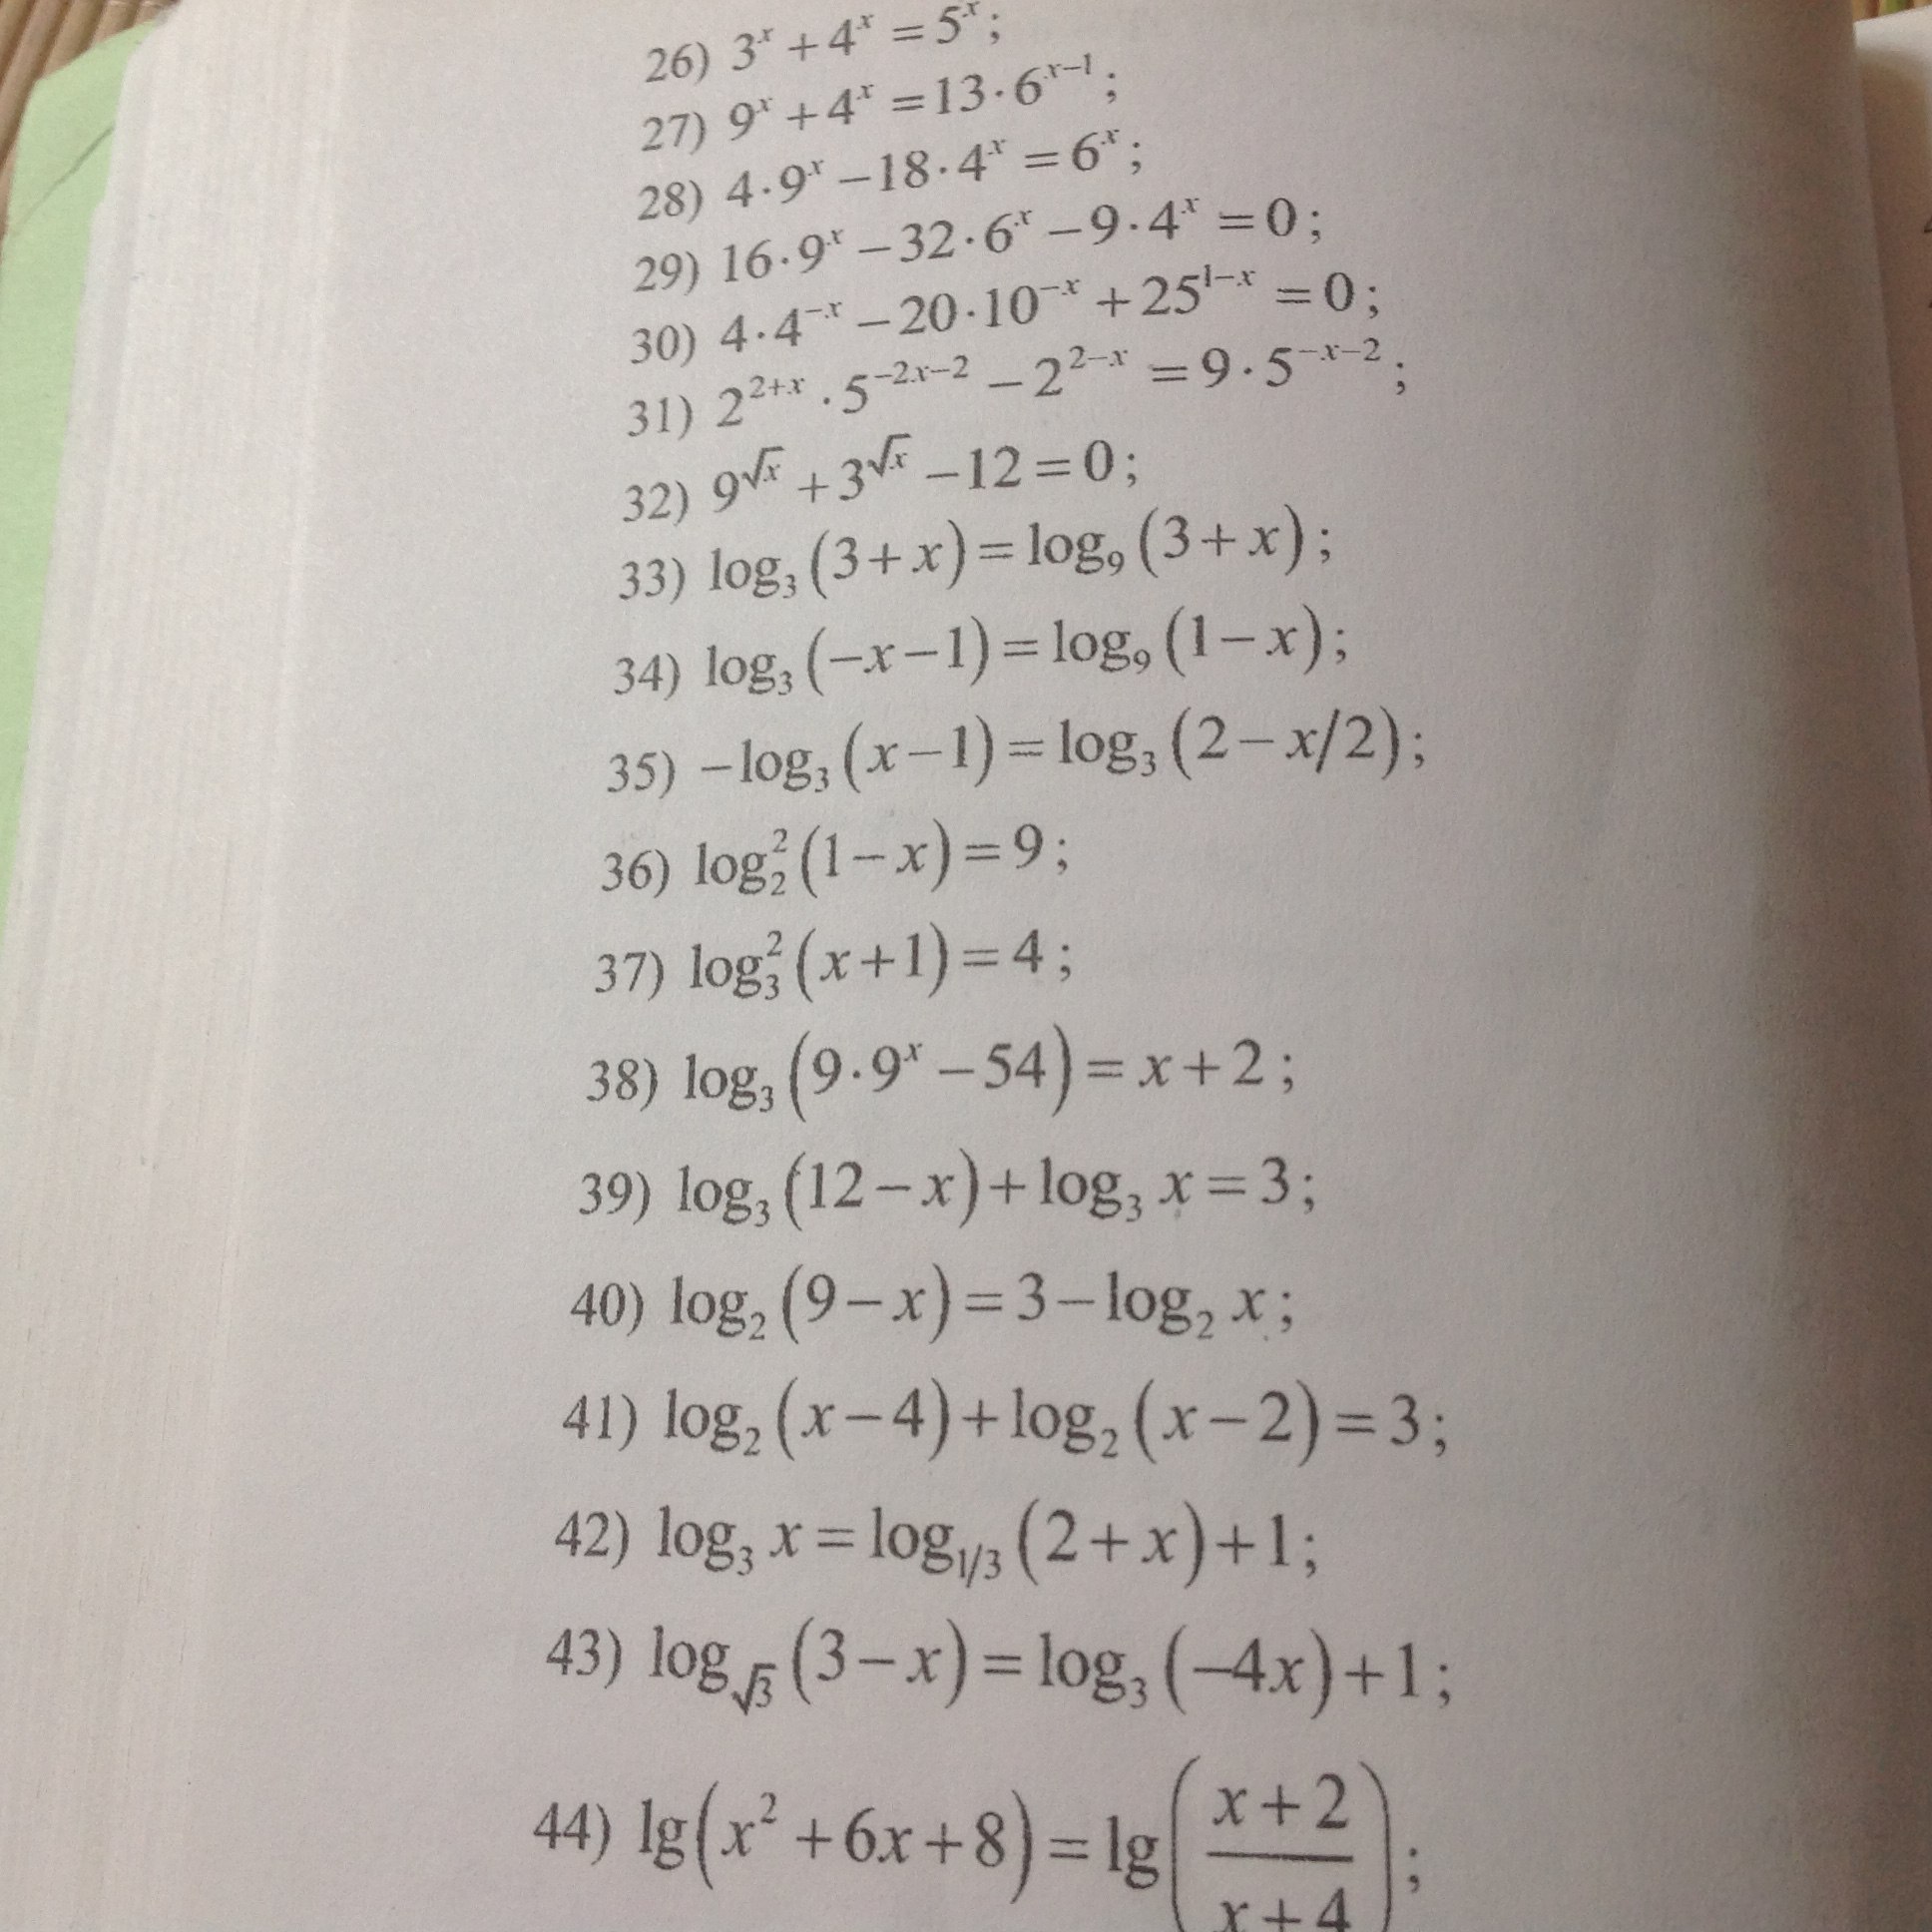 26) 3^x + 4^x = 5^x;
27) 9^x + 4^x = 13·6^(x−1);
28) 4·9^x − 18·4^x = 6^x;
29) 16·9^x − 32·6^x − 9·4^x = 0;
30) 4·4^(−x) − 20·10^(−x) + 25^(1−x) = 0;
31) 2^(2+x) · 5^(−2x−2) − 2^(2−x) = 9·5^(−x−2);
32) 9^√x + 3^√x − 12 = 0;
33) log₃(3+x) = log₉(3+x);
34) log₃(−x−1) = log₉(1−x);
35) −log₃(x−1) = log₃(2−x/2);
36) log₂²(1−x) = 9;
37) log₃²(x+1) = 4;
38) log₃(9·9^x − 54) = x+2;
39) log₃(12−x) + log₃ x = 3;
40) log₂(9−x) = 3 − log₂ x;
41) log₂(x−4) + log₂(x−2) = 3;
42) log₃ x = log_(1/3)(2+x) + 1;
43) log_√3(3−x) = log₃(−4x) + 1;
44) lg(x² + 6x + 8) = lg((x+2)/(x+4));